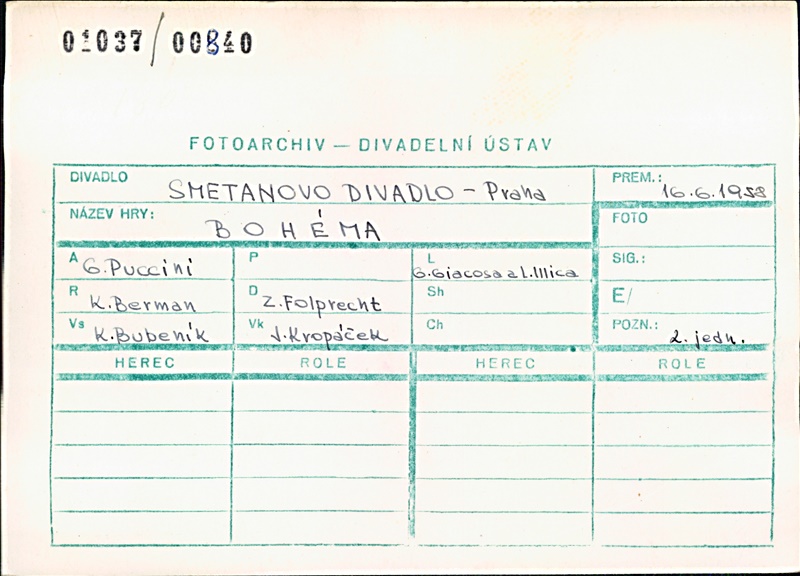 01037/00840
FOTOARCHIV — DIVADELNÍ ÚSTAV
DIVADLO SMETANOVO DIVADLO - Praha PREM.: 16.6.1958
NÁZEV HRY: BOHÉMA FOTO
A G. Puccini P L G. Giacosa a L. Illica SIG.:
R K. Berman D Z. Folprecht Sh E/
Vs K. Bubeník Vk J. Kropáček Ch POZN.: 2. jedn.
HEREC ROLE HEREC ROLE